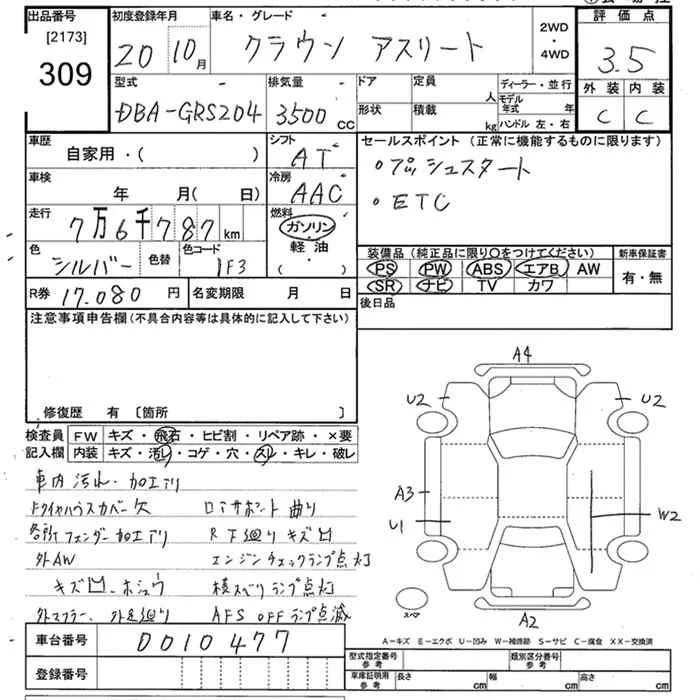 出品番号 初度登録年月 車名・グレード 評価点
[2173] 309 20 10月 クラウン アスリート 2WD・4WD 3.5
型式 排気量 ドア 定員 人 ディーラー・並行 外装 内装
DBA-GRS204 3500 CC 形状 積載 kg モデル年式 年 ハンドル 左・右 C C
車歴 自家用・( ) シフト AT セールスポイント (正常に機能するものに限ります)
・プッシュスタート
車検 年 月( 日) 冷房 AAC ・ETC
走行 7万6千787km 燃料 ガソリン・軽油 ( ・ )
色 シルバー 色替 色コード 1F3 装備品(純正品に限り○をつけてください) 新車保証書
PS PW ABS エアB AW 有・無
SR ナビ TV カワ
R券 17.080 円 名変期限 月 日 後日品
注意事項申告欄(不具合内容等は具体的に記入して下さい)
修復歴 有 〔箇所 〕
検査員記入欄 FW キズ・飛石・ヒビ割・リペア跡・×要
内装 キズ・汚レ・コゲ・穴・スレ・キレ・破レ
車内汚れ・加工アリ
ドライヤハウスカバー欠 ロアサポート曲り
各所フェンダー加工アリ R下廻りキズ凹
外AW エンジンチェックランプ点灯
キズ凹、ホシュウ 横スベリランプ点灯
外マフラー、外足廻り AFS OFFランプ点滅
A4
U2 U2
A3
U1 W2
スペア A2
A-キズ E-エクボ U-凹み W-補修跡 S-サビ C-腐食 XX-交換済
車台番号 D010477 型式指定番号 参考 類別区分番号 参考
登録番号 車庫証明用 参考 長さ cm 幅 cm 高さ cm